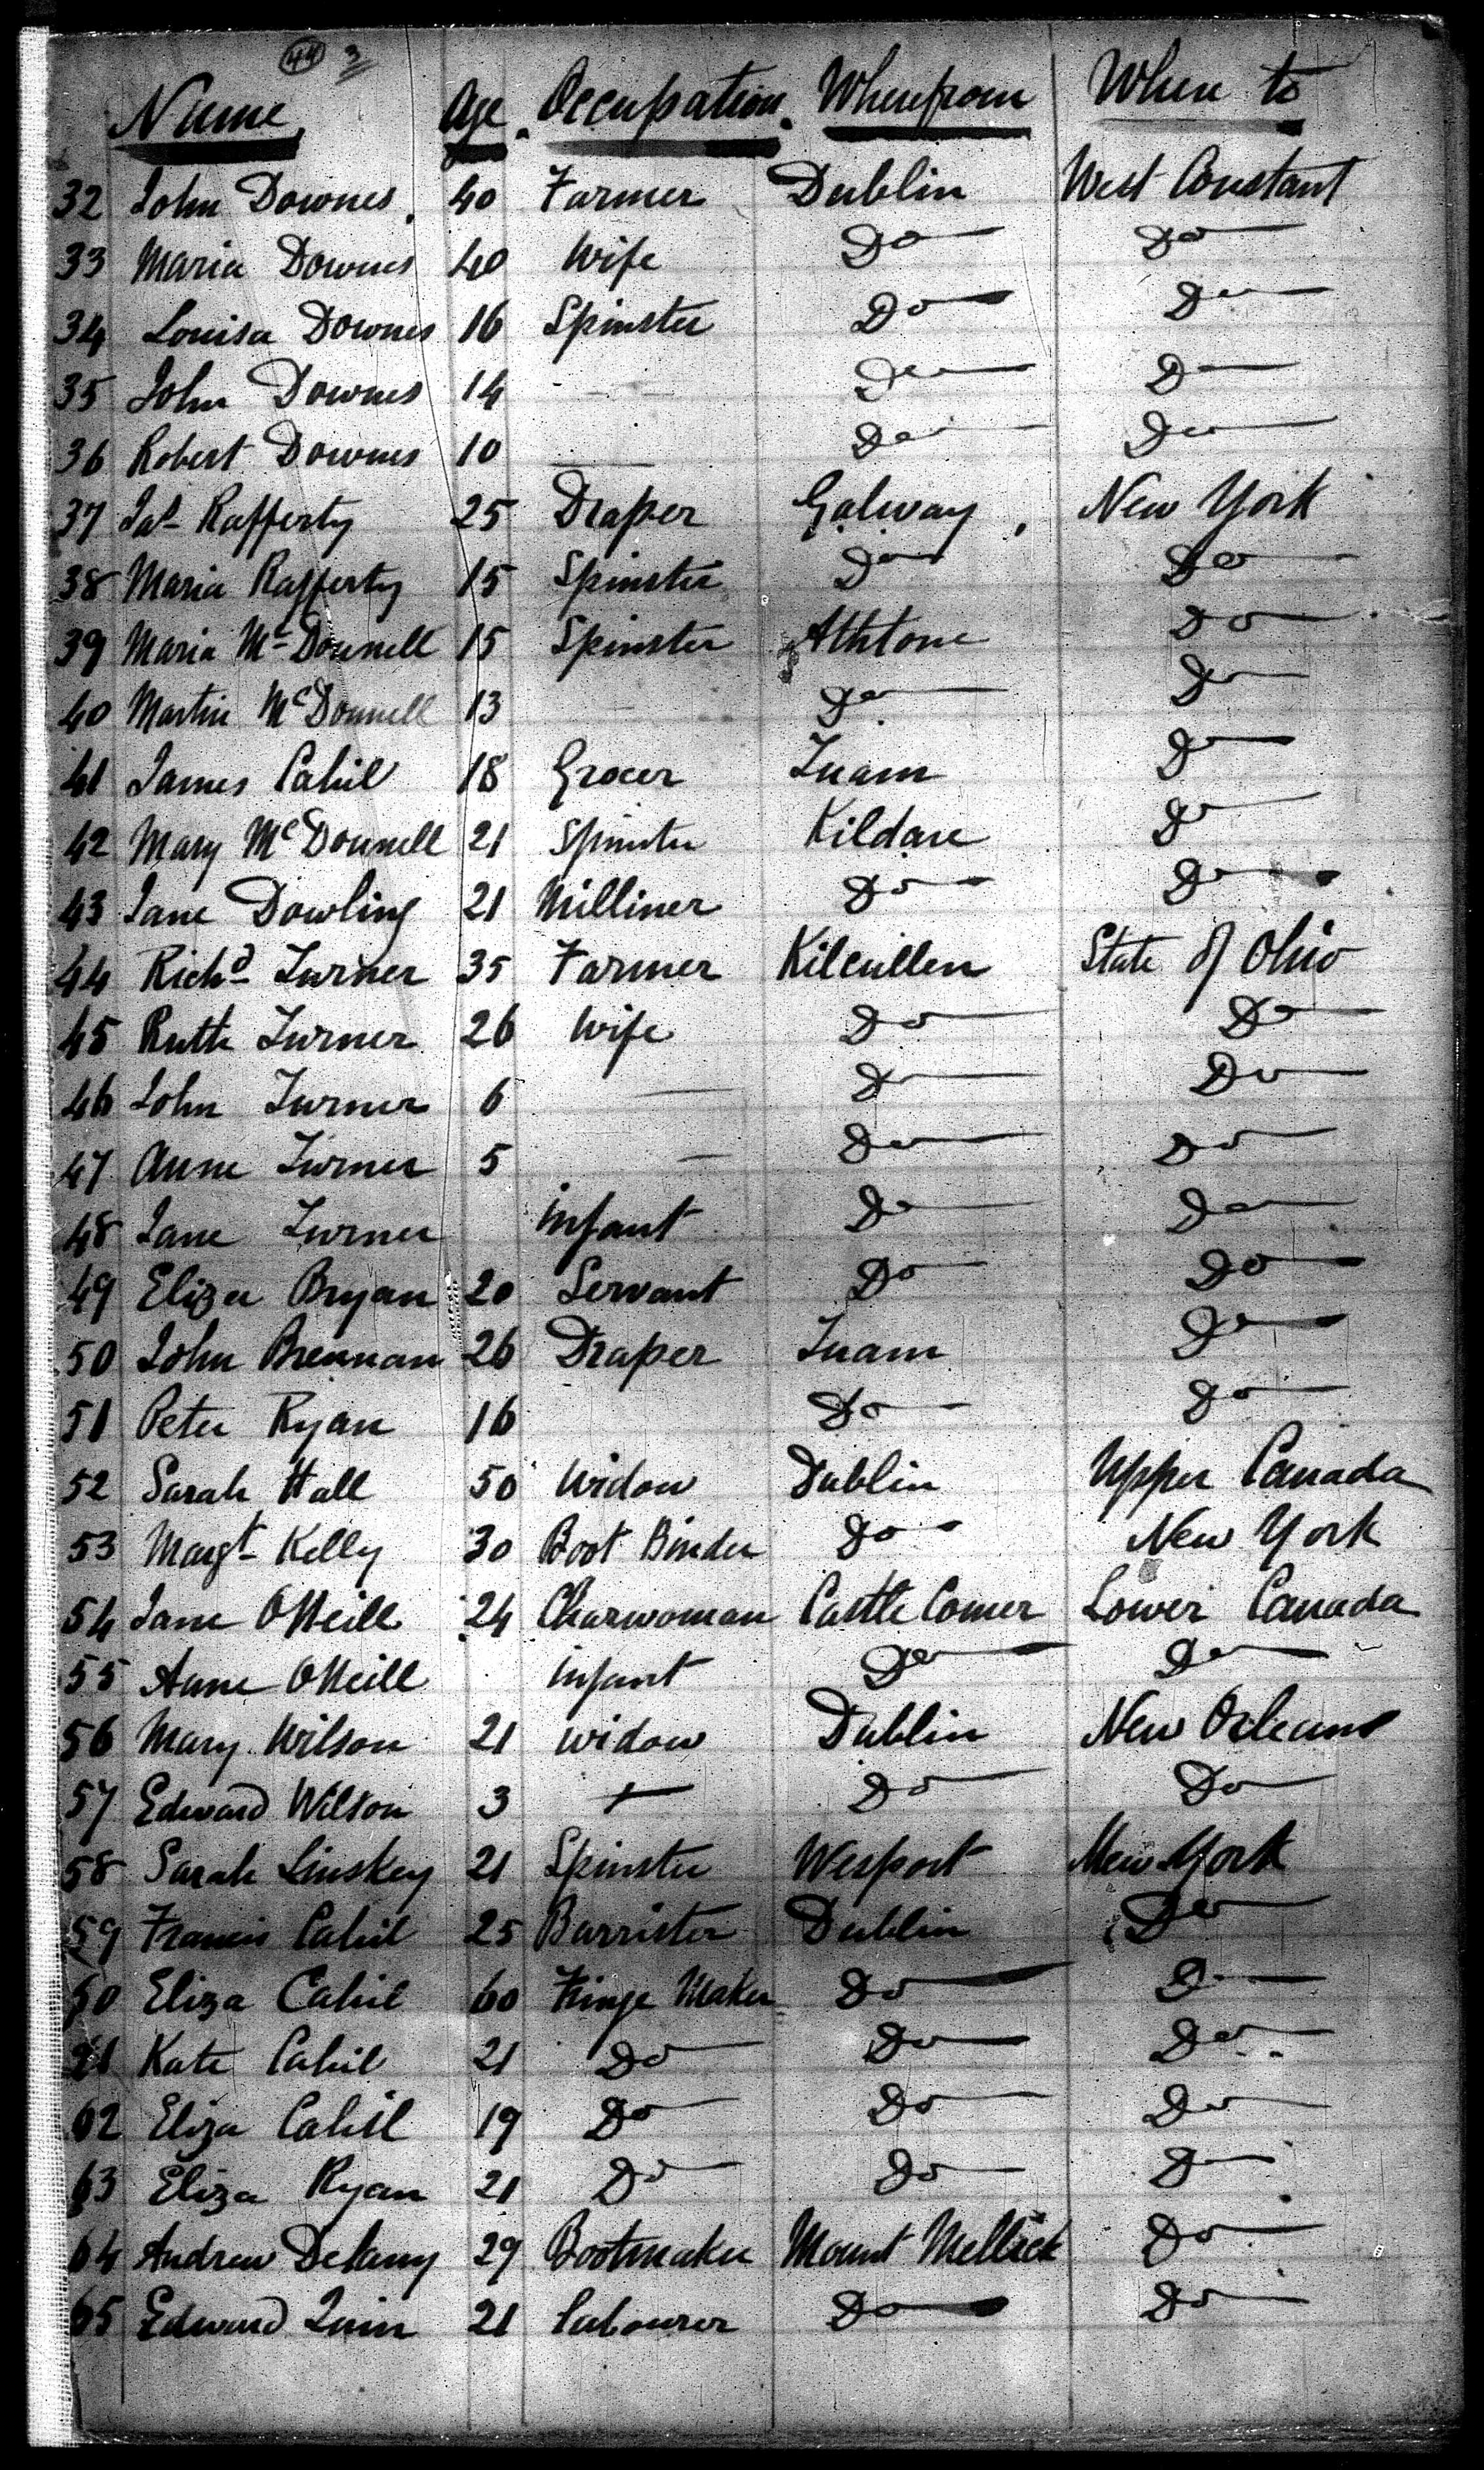 44 3
Name Age. Occupation. Wherefrom Where to
32 John Downes. 40 Farmer Dublin West Constant
33 Maria Downes 40 Wife Do Do
34 Louisa Downes 16 Spinster Do Do
35 John Downes 14 — Do Do
36 Robert Downes 10 — Do Do
37 Jas Rafferty 25 Draper Galway, New York
38 Maria Rafferty 15 Spinster Do Do
39 Maria McDonnell 15 Spinster Athtone Do
40 Martin McDonnell 13 — Do Do
41 James Cahil 18 Grocer Tuam Do
42 Mary McDonnell 21 Spinster Kildare Do
43 Jane Dowling 21 Milliner Do Do
44 Richd Turner 35 Farmer Kilcullen State of Ohio
45 Ruth Turner 26 Wife Do Do
46 John Turner 6 — Do Do
47 Anne Turner 5 — Do Do
48 Jane Turner infant Do Do
49 Eliza Bryan 20 Servant Do Do
50 John Brennan 26 Draper Tuam Do
51 Peter Ryan 16 Do Do
52 Sarah Hall 50 Widow Dublin Upper Canada
53 Margt Kelly 30 Boot Binder Do New York
54 Jane ONeill 24 Charwoman Castle Comer Lower Canada
55 Anne ONeill infant Do Do
56 Mary Wilson 21 Widow Dublin New Orleans
57 Edward Wilson 3 — Do Do
58 Sarah Linskey 21 Spinster Wesport New York
59 Francis Cahil 25 Barrister Dublin Do
60 Eliza Cahil 60 Fringe Maker Do Do
61 Kate Cahil 21 Do Do Do
62 Eliza Cahil 19 Do Do Do
63 Eliza Ryan 21 Do Do Do
64 Andrew Delany 29 Bootmaker Mount Mellick Do
65 Edward Quin 21 Labourer Do Do